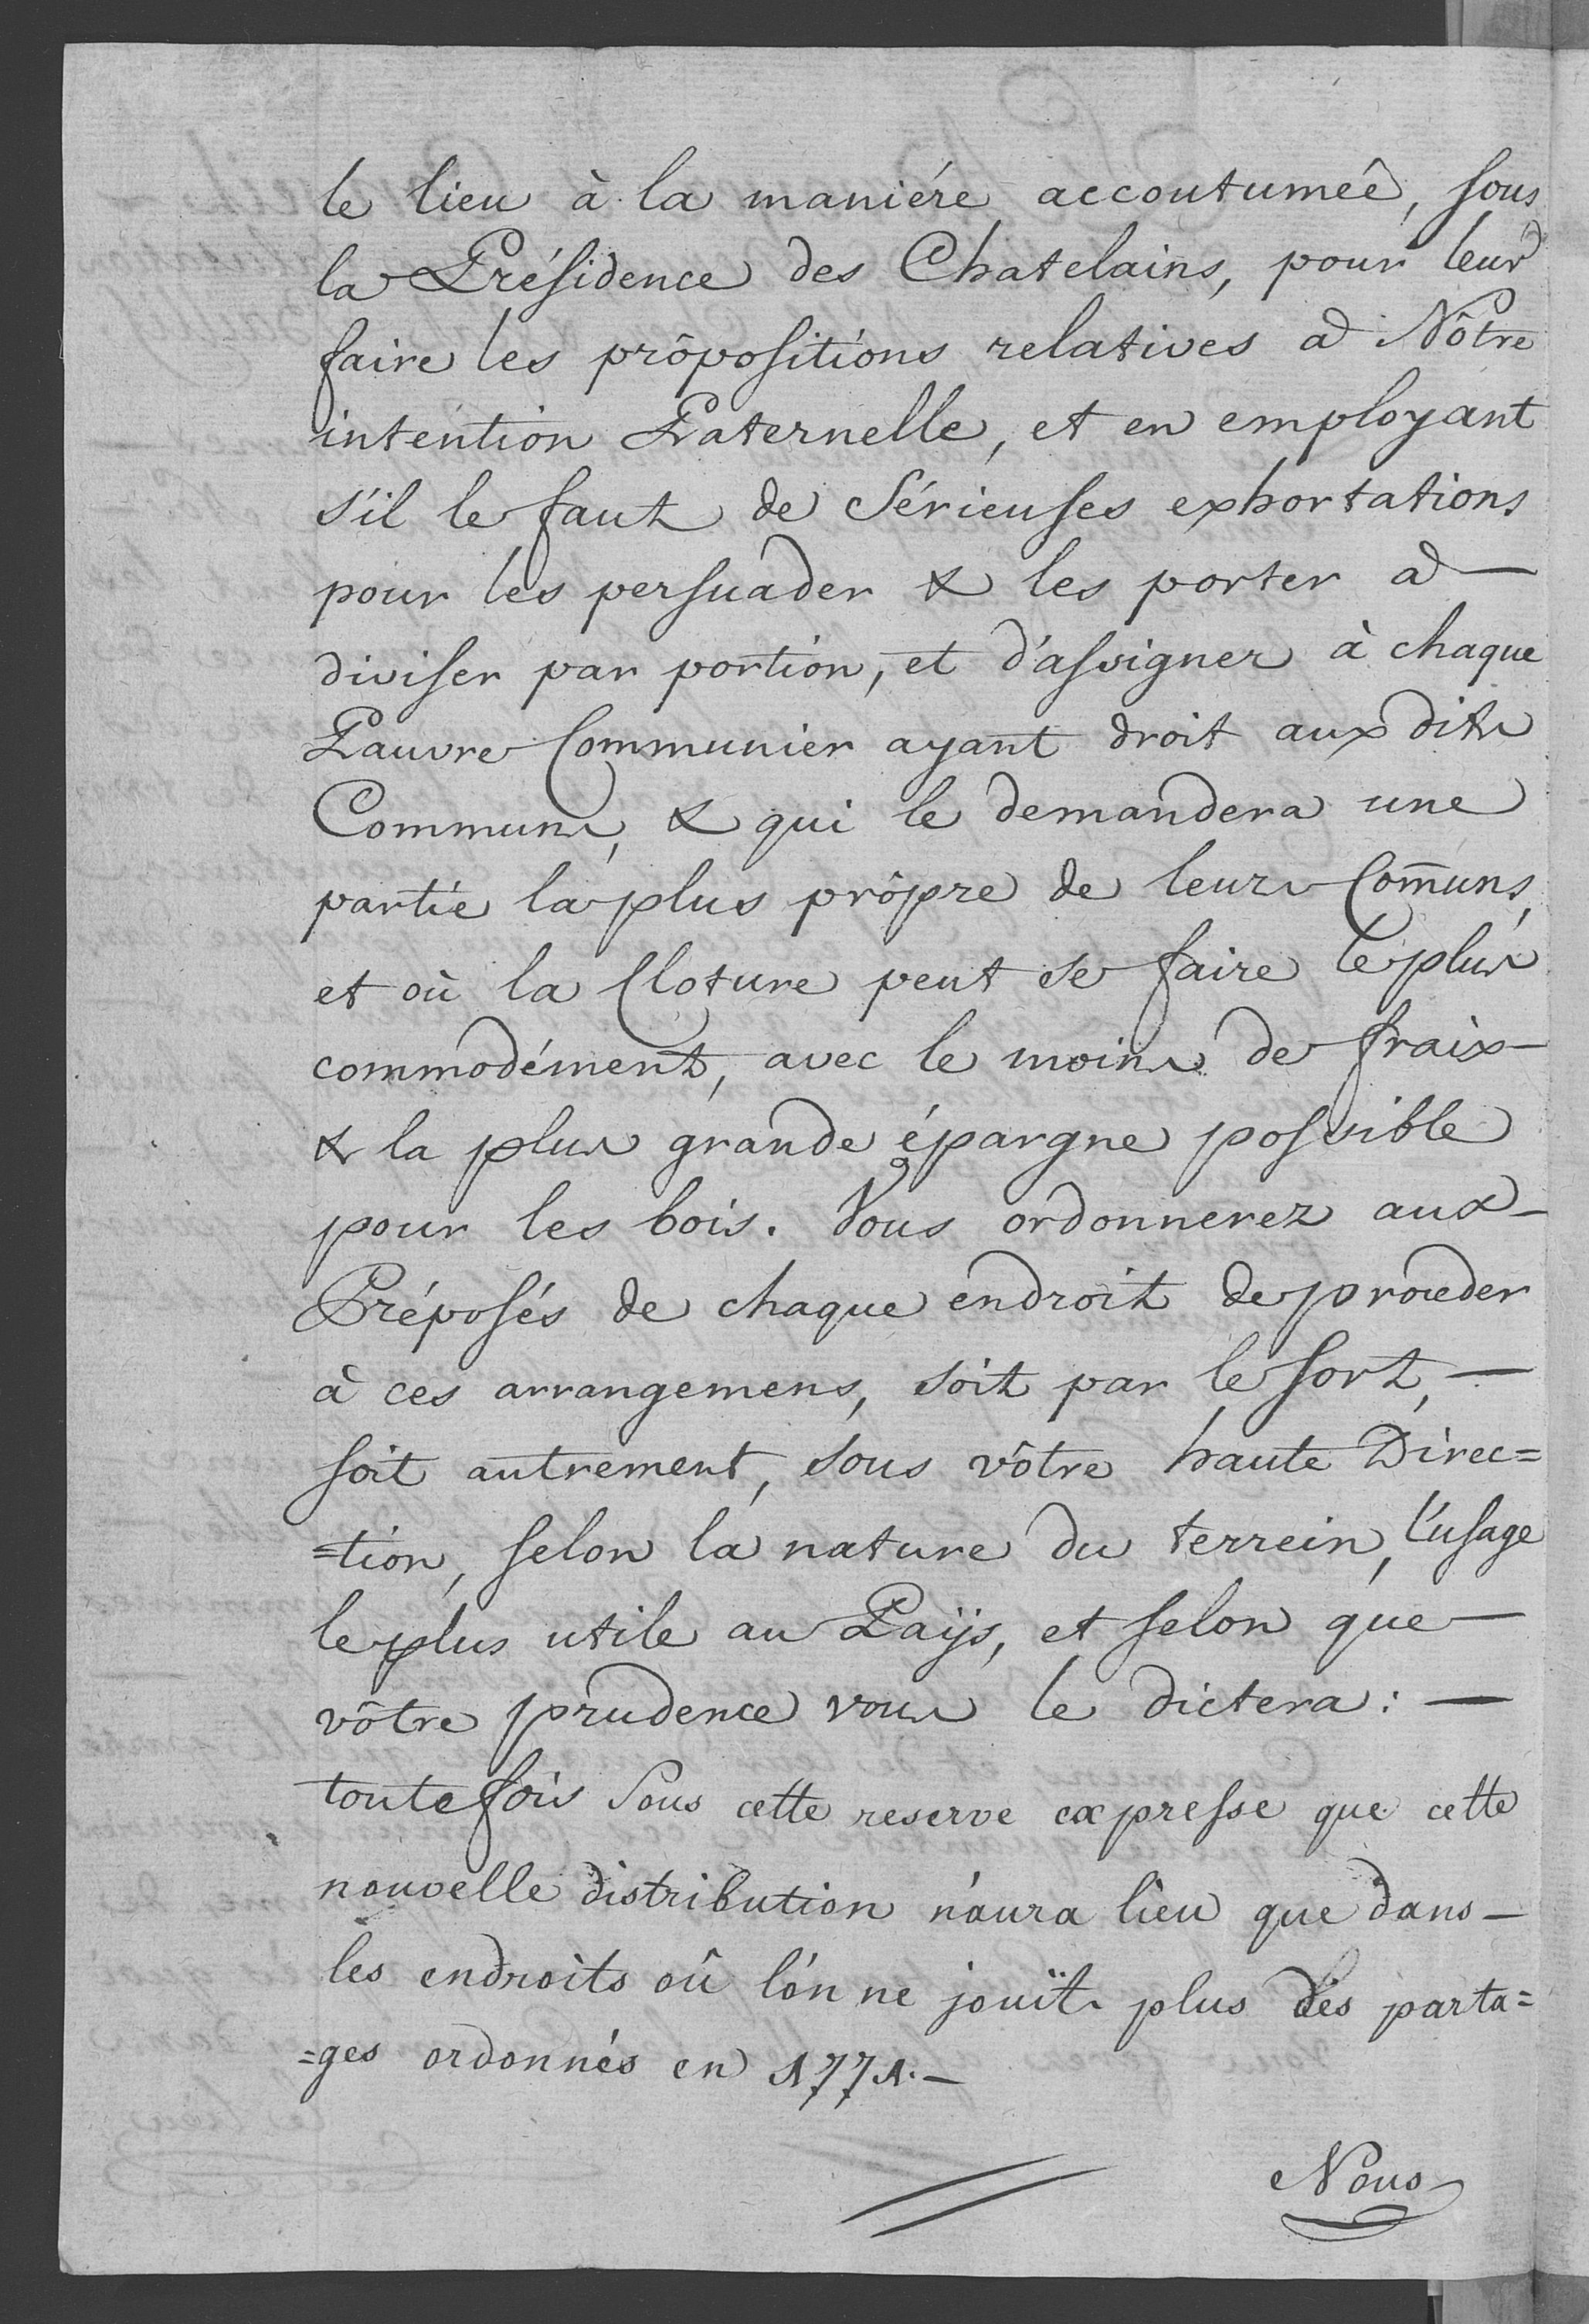 le lieu à la maniére accoutumeê, sous
la Présidence des Chatelains, pour leur
faire les prôpositions relatives a Nôtre
intention Paternelle, et en employant
s'il le faut de sérieuses exhortations
pour les persuader & les porter a —
diviser par portion, et d'assigner à chaque
Pauvre Communier ayant droit aux dits
Communs, & qui le demandera une
partie la plus prôpre de leurs Com̄uns,
et où la Cloture peut se faire le plus
commodément, avec le moins de fraix —
& la plus grande épargne possible
pour les bois. Vous ordonnerez aux —
Préposés de chaque endroit de proceder
à ces arrangemens, soit par le sort, —
soit autrement, sous vôtre haute Direc=
=tion, selon la nature du terrein, l'usage
le plus utile au Païjs, et selon que —
vôtre prudence vous le dictera : —
toutefois sous cette reserve expresse que cette
nouvelle distribution n'aura lieu que dans —
les endroits oû l'on ne jouït plus des parta=
=ges ordonnés en 1771. —
Nous